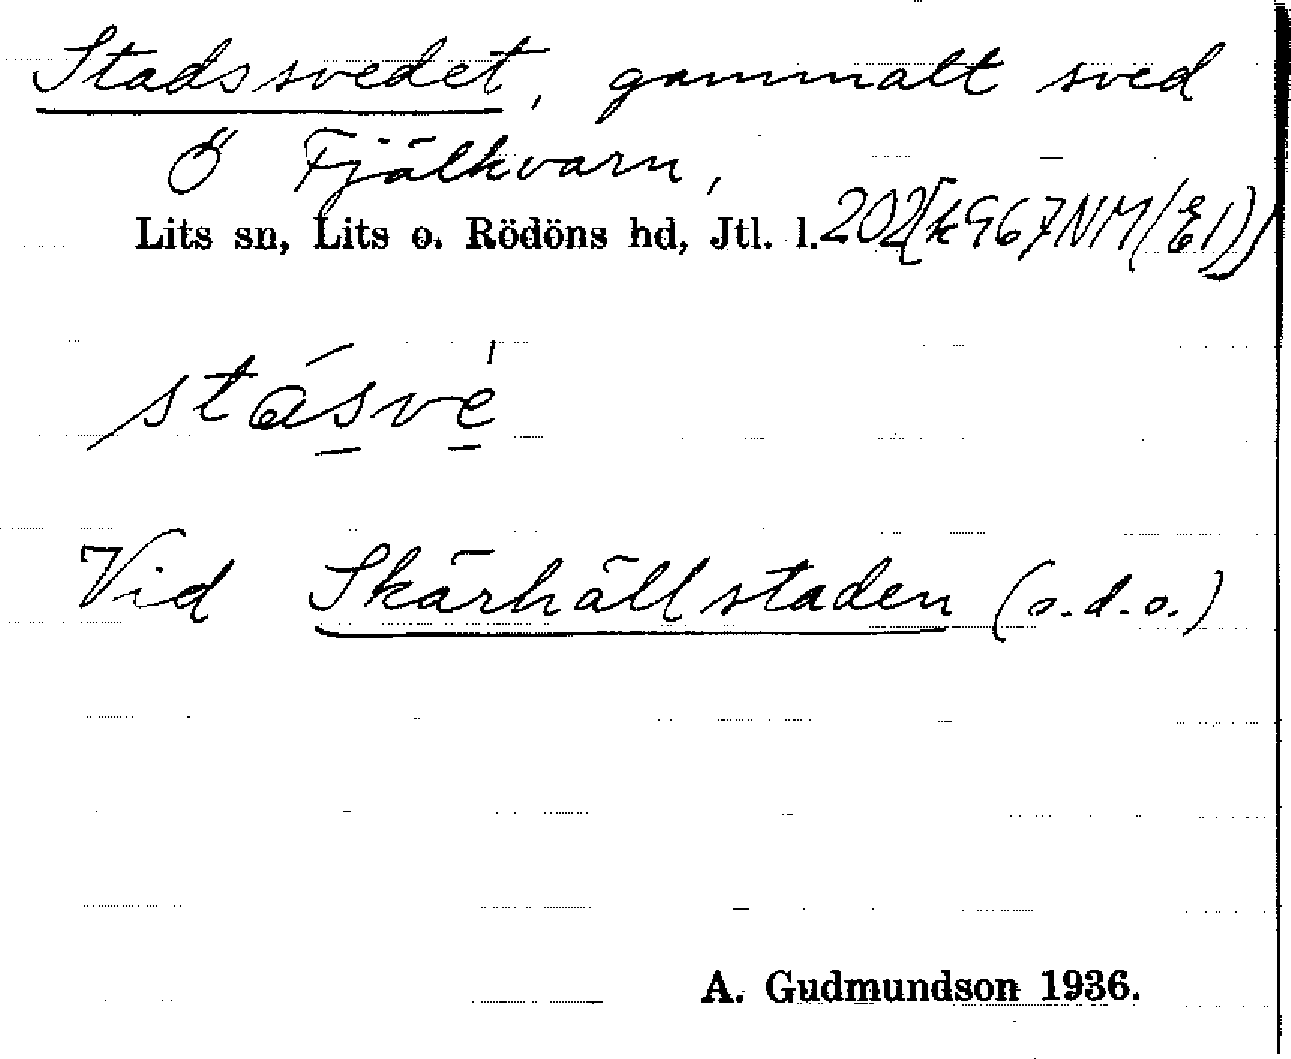 Stadssvedet, gammalt sved
Ö Fjälkvarn,
Lits sn, Lits o. Rödöns hd, Jtl. l. 202[k967NM(E1)]
stásvé
Vid Skärhällstaden (s.d.o.)
A. Gudmundson 1936.